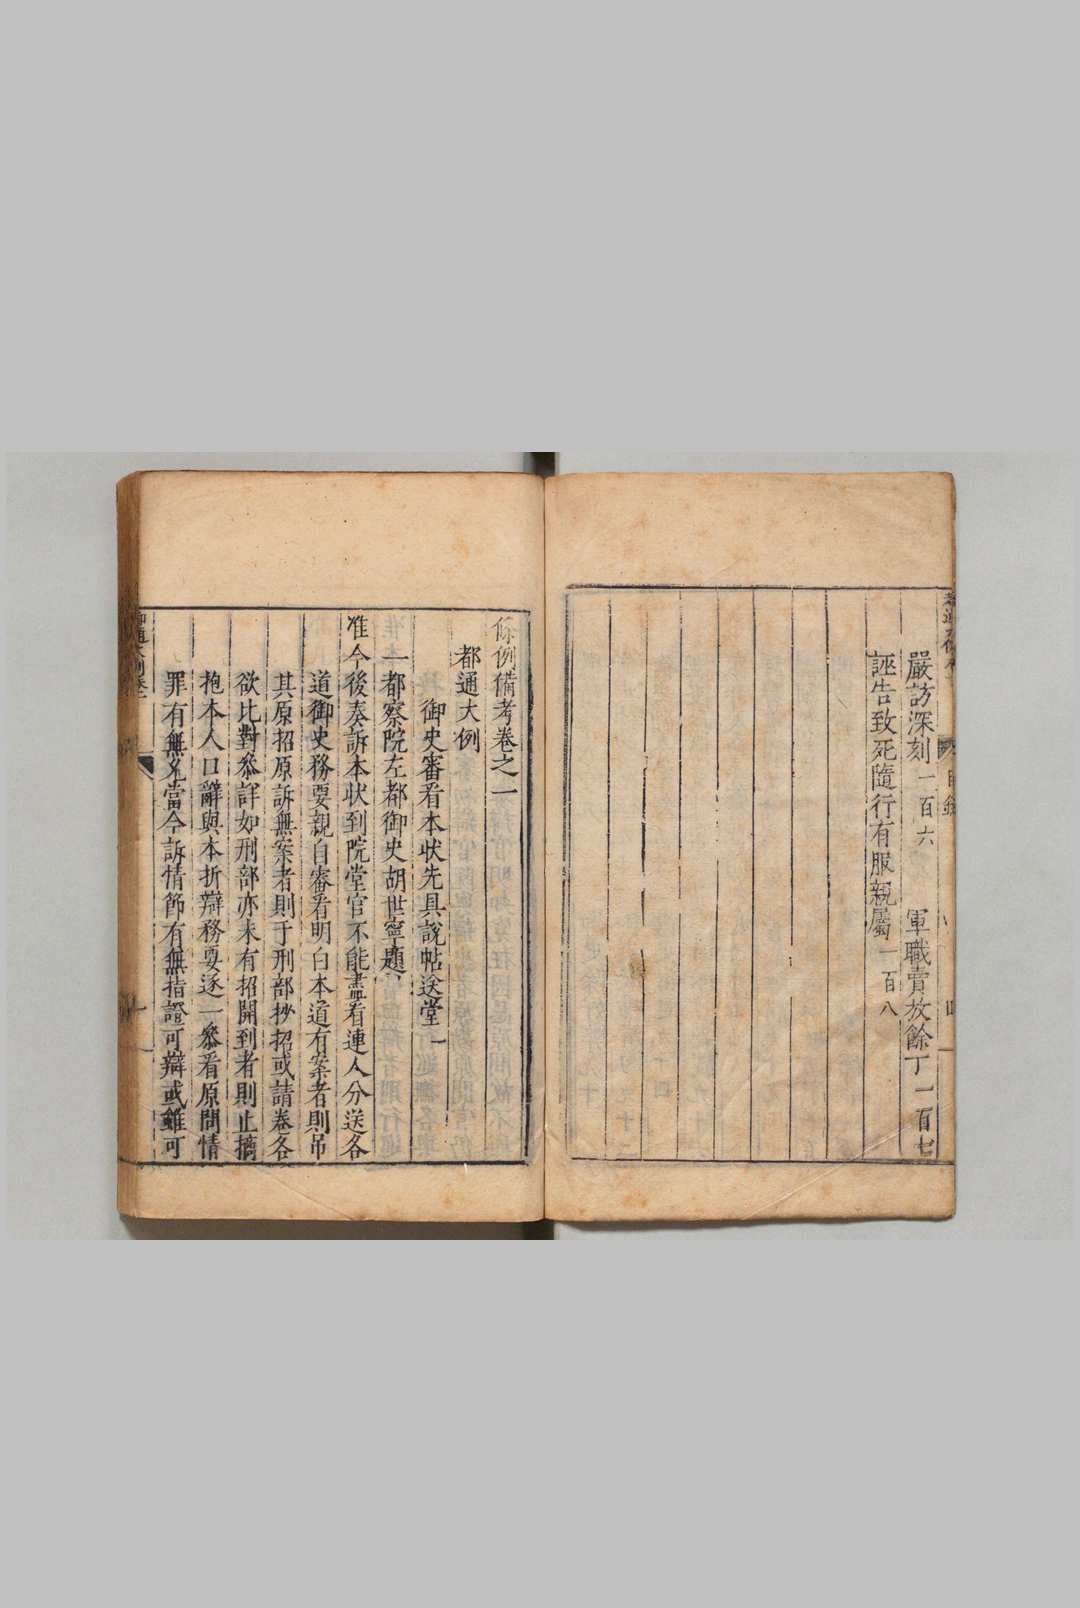 嚴訪深刻一百六 軍職賣放餘丁一百七
誣告致死隨行有服親屬一百八
條例備考卷之一
都通大例
御史審看本狀先具說帖送堂一
一都察院左都御史胡世寧題
准今後奏訴本狀到院堂官不能盡看連人分送各
道御史務要親自審看明白本道有案者則吊
其原招原訴無案者則于刑部抄招或請卷各
欲比對叅詳如刑部亦未有招開到者則止摘
抱本人口辭與本折辯務要逐一叅看原問情
罪有無㐫當今訴情節有無指證可辯或雖可